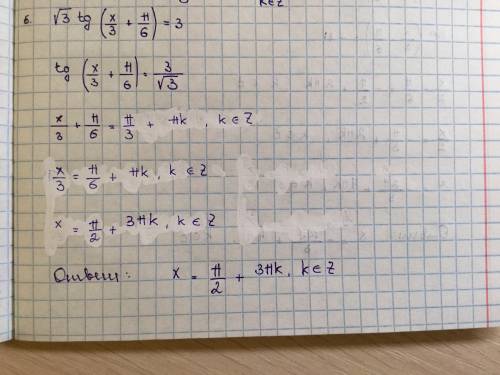 k∈Z
6. √3 tg (x/3 + π/6) = 3
tg (x/3 + π/6) = 3/√3
x/3 + π/6 = π/3 + πk, k ∈ Z
x/3 = π/6 + πk, k ∈ Z
x = π/2 + 3πk, k ∈ Z
Ответ: x = π/2 + 3πk, k ∈ Z